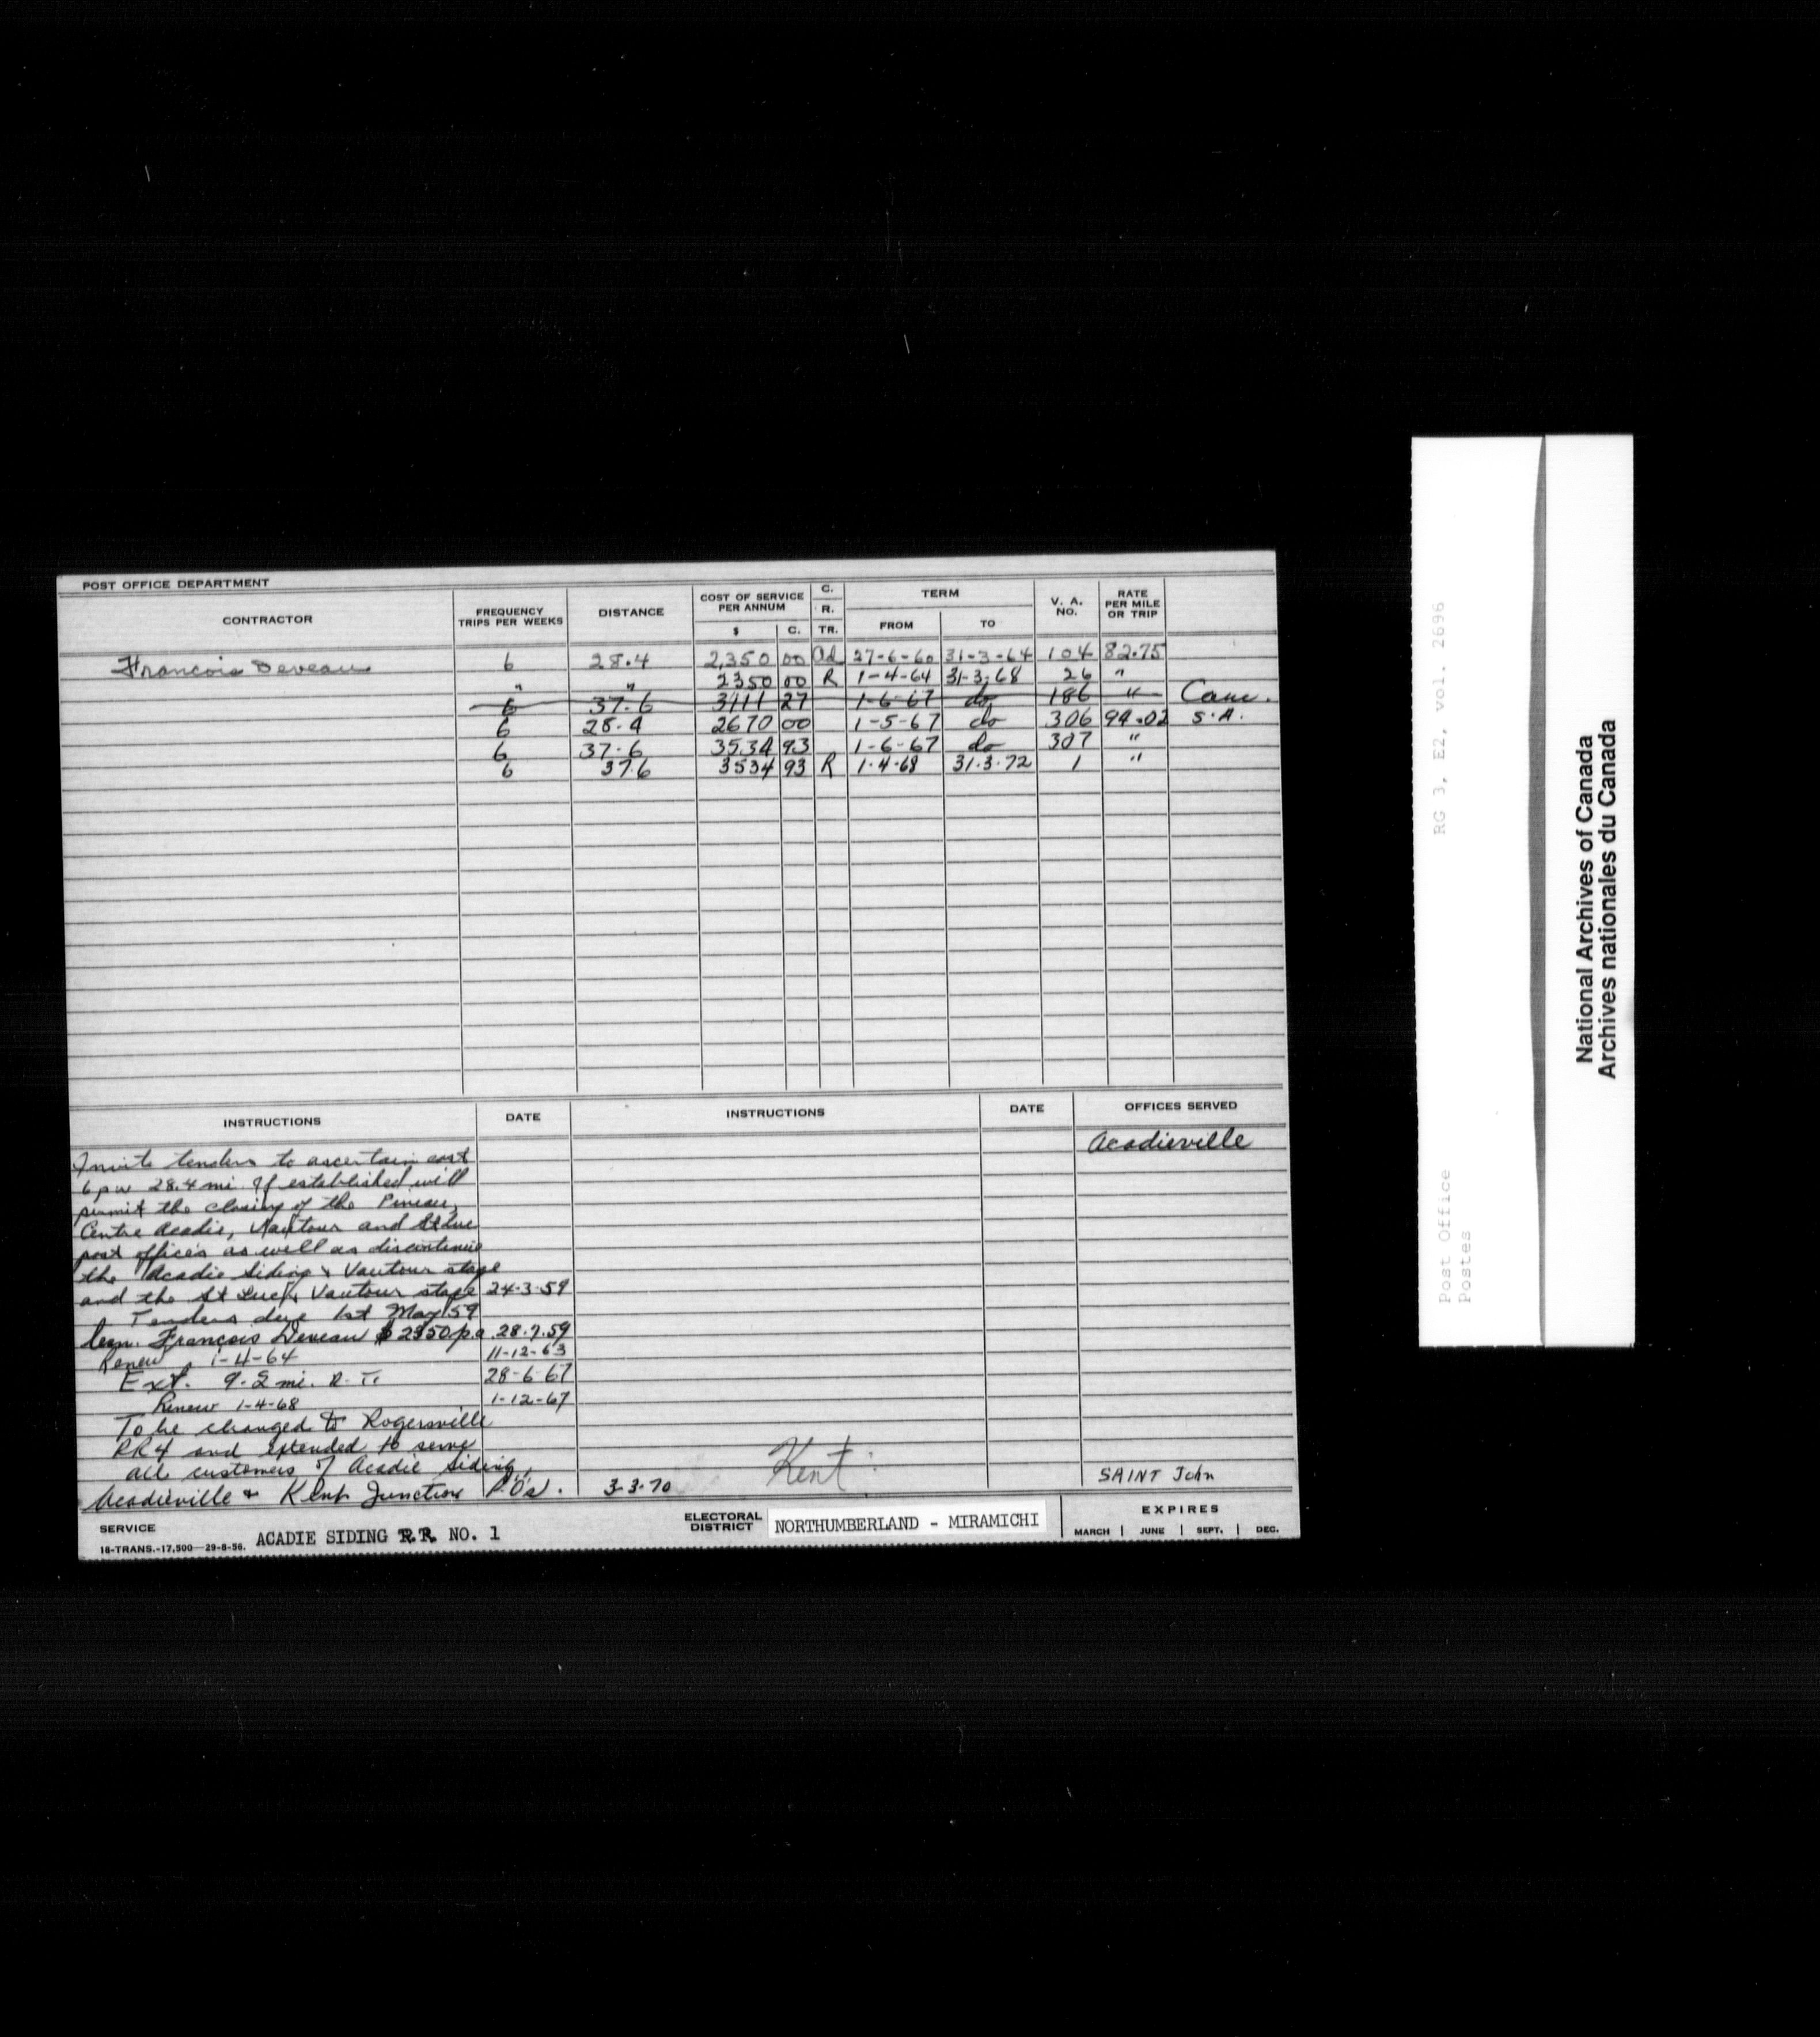 POST OFFICE DEPARTMENT
CONTRACTOR FREQUENCY TRIPS PER WEEKS DISTANCE COST OF SERVICE PER ANNUM $ C. C. R. TR. TERM FROM TO V. A. NO. RATE PER MILE OR TRIP
Francois Deveau 6 28.4 2,350 00 Ad 27-6-60 31-3-64 104 82.75
" " 2350 00 R 1-4-64 31-3-68 26 "
6 37.6 3111 27 1-6-67 do 186 " Canc.
6 28.4 2670 00 1-5-67 do 306 94.02 S.A.
6 37.6 3534 93 1-6-67 do 307 "
6 37.6 3534 93 R 1.4.68 31.3.72 1 "
INSTRUCTIONS DATE INSTRUCTIONS DATE OFFICES SERVED
Acadieville
Invite tenders to ascertain cost
6 p w 28.4 mi. If established will
permit the closing of the Pineau,
Centre Acadie, Vautour and St Luc
post offices as well as discontinue
the Acadie Siding & Vautour stage
and the St Luc & Vautour stage 24-3-59
Tenders due 1st May/59
Francois Deveau $2350 p.a. 28.7.59
Renew 1-4-64 11-12-63
Ext. 9.2 mi. R.T. 28-6-67
Renew 1-4-68 1-12-67
To be changed to Rogersville
RR4 and extended to serve
all customers of Acadie Siding,
Acadieville & Kent Junction P.O's. 3-3-70
Kent
SAINT John
SERVICE ACADIE SIDING R.R. NO. 1
ELECTORAL DISTRICT NORTHUMBERLAND - MIRAMICHI
EXPIRES
MARCH | JUNE | SEPT. | DEC.
18-TRANS.-17,500—29-8-56.
RG 3, E2, vol. 2696
Post Office
Postes
National Archives of Canada
Archives nationales du Canada